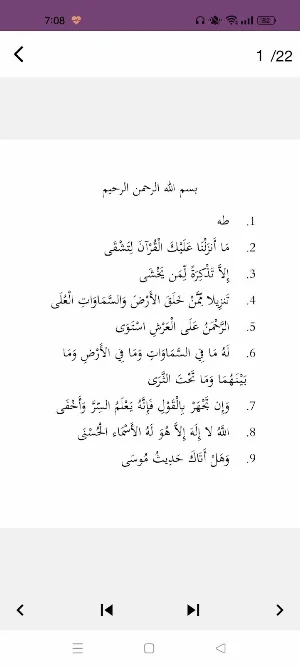 7:08
82
1 /22
بسم الله الرحمن الرحيم
1. طه
2. مَا أَنزَلْنَا عَلَيْكَ الْقُرْآنَ لِتَشْقَى
3. إِلاَّ تَذْكِرَةً لِّمَن يَخْشَى
4. تَنزِيلا مِّمَّنْ خَلَقَ الأَرْضَ وَالسَّمَاوَاتِ الْعُلَى
5. الرَّحْمَنُ عَلَى الْعَرْشِ اسْتَوَى
6. لَهُ مَا فِي السَّمَاوَاتِ وَمَا فِي الأَرْضِ وَمَا
بَيْنَهُمَا وَمَا تَحْتَ الثَّرَى
7. وَإِن تَجْهَرْ بِالْقَوْلِ فَإِنَّهُ يَعْلَمُ السِّرَّ وَأَخْفَى
8. اللَّهُ لا إِلَهَ إِلاَّ هُوَ لَهُ الأَسْمَاء الْحُسْنَى
9. وَهَلْ أَتَاكَ حَدِيثُ مُوسَى